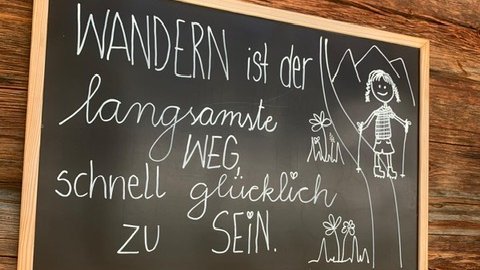 WANDERN ist der
langsamste
WEG
schnell glücklich
ZU SEiN.